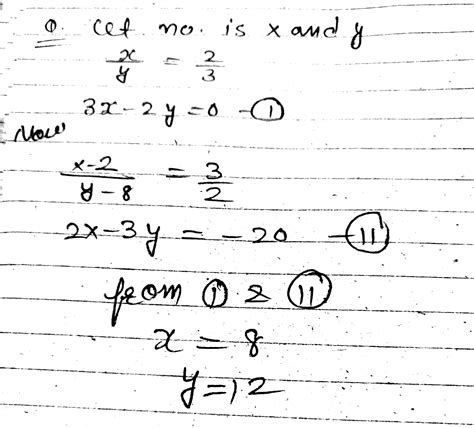 Q. Let no. is x and y
x/y = 2/3
3x - 2y = 0 - (I)
Now
x-2/y-8 = 3/2
2x - 3y = -20 - (II)
from (I) & (II)
x = 8
y = 12